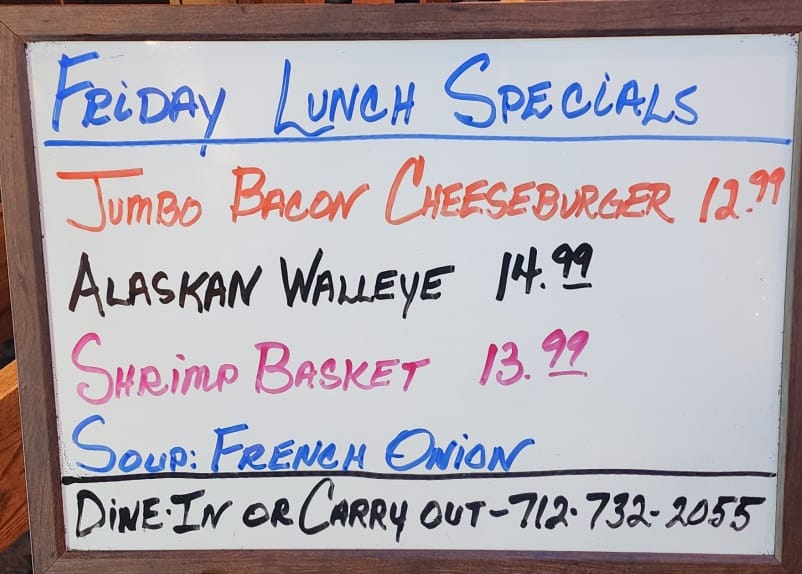 Friday Lunch Specials
Jumbo Bacon Cheeseburger 12.99
Alaskan Walleye 14.99
Shrimp Basket 13.99
Soup: French Onion
Dine-In or Carry out-712-732-2055